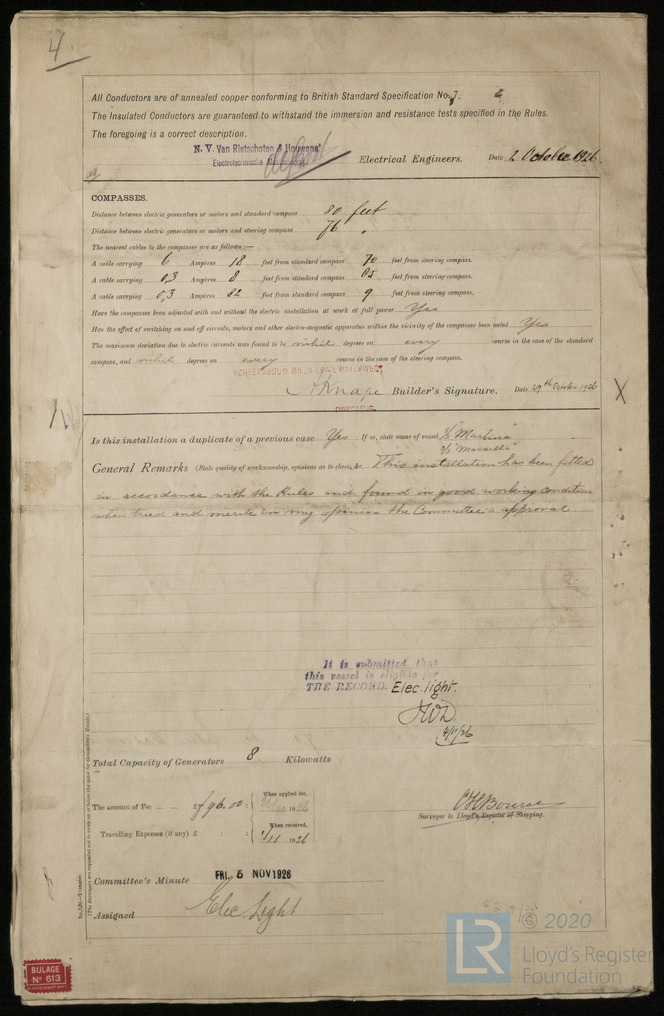 4.
All Conductors are of annealed copper conforming to British Standard Specification No. 7.
The Insulated Conductors are guaranteed to withstand the immersion and resistance tests specified in the Rules.
The foregoing is a correct description.
N. V. Van Rietschoten & Houwens'
Electrotechnische
Electrical Engineers. Date 2 October 1926.
COMPASSES.
Distance between electric generators or motors and standard compass 80 feet
Distance between electric generators or motors and steering compass 76 "
The nearest cables to the compasses are as follows:—
A cable carrying 6 Amperes 18 feet from standard compass 70 feet from steering compass.
A cable carrying 0,3 Amperes 8 feet from standard compass 85 feet from steering compass.
A cable carrying 0,3 Amperes 82 feet from standard compass 9 feet from steering compass.
Have the compasses been adjusted with and without the electric installation at work at full power Yes
Has the effect of switching on and off circuits, motors and other electro-magnetic apparatus within the vicinity of the compasses been noted Yes
The maximum deviation due to electric currents was found to be nihil degrees on every course in the case of the standard
compass, and nihil degrees on every course in the case of the steering compass.
Builder's Signature. Date 29th October 1926
DIRECTEUR.
X
Is this installation a duplicate of a previous case Yes If so, state name of vessel S/S "Martina"
S/S "Marsella"
General Remarks (State quality of workmanship, opinions as to class, &c. This installation has been fitted
in accordance with the Rules and found in good working condition
when tried and merits in my opinion the Committee's approval.
It is submitted that
this vessel is eligible for
THE RECORD. Elec. light.
4/11/26
Total Capacity of Generators 8 Kilowatts
The amount of Fee ... ... £ 96.00 : When applied for,
1926
Travelling Expenses (if any) £ : : When received,
1/11 1926
Surveyor to Lloyd's Register of Shipping.
Committee's Minute FRI. 5 NOV 1926
Assigned Elec Light
(The Surveyors are requested not to write on or below the space for Committee's Minute.)
BULAGE
No 613
LR © 2020
Lloyd's Register
Foundation